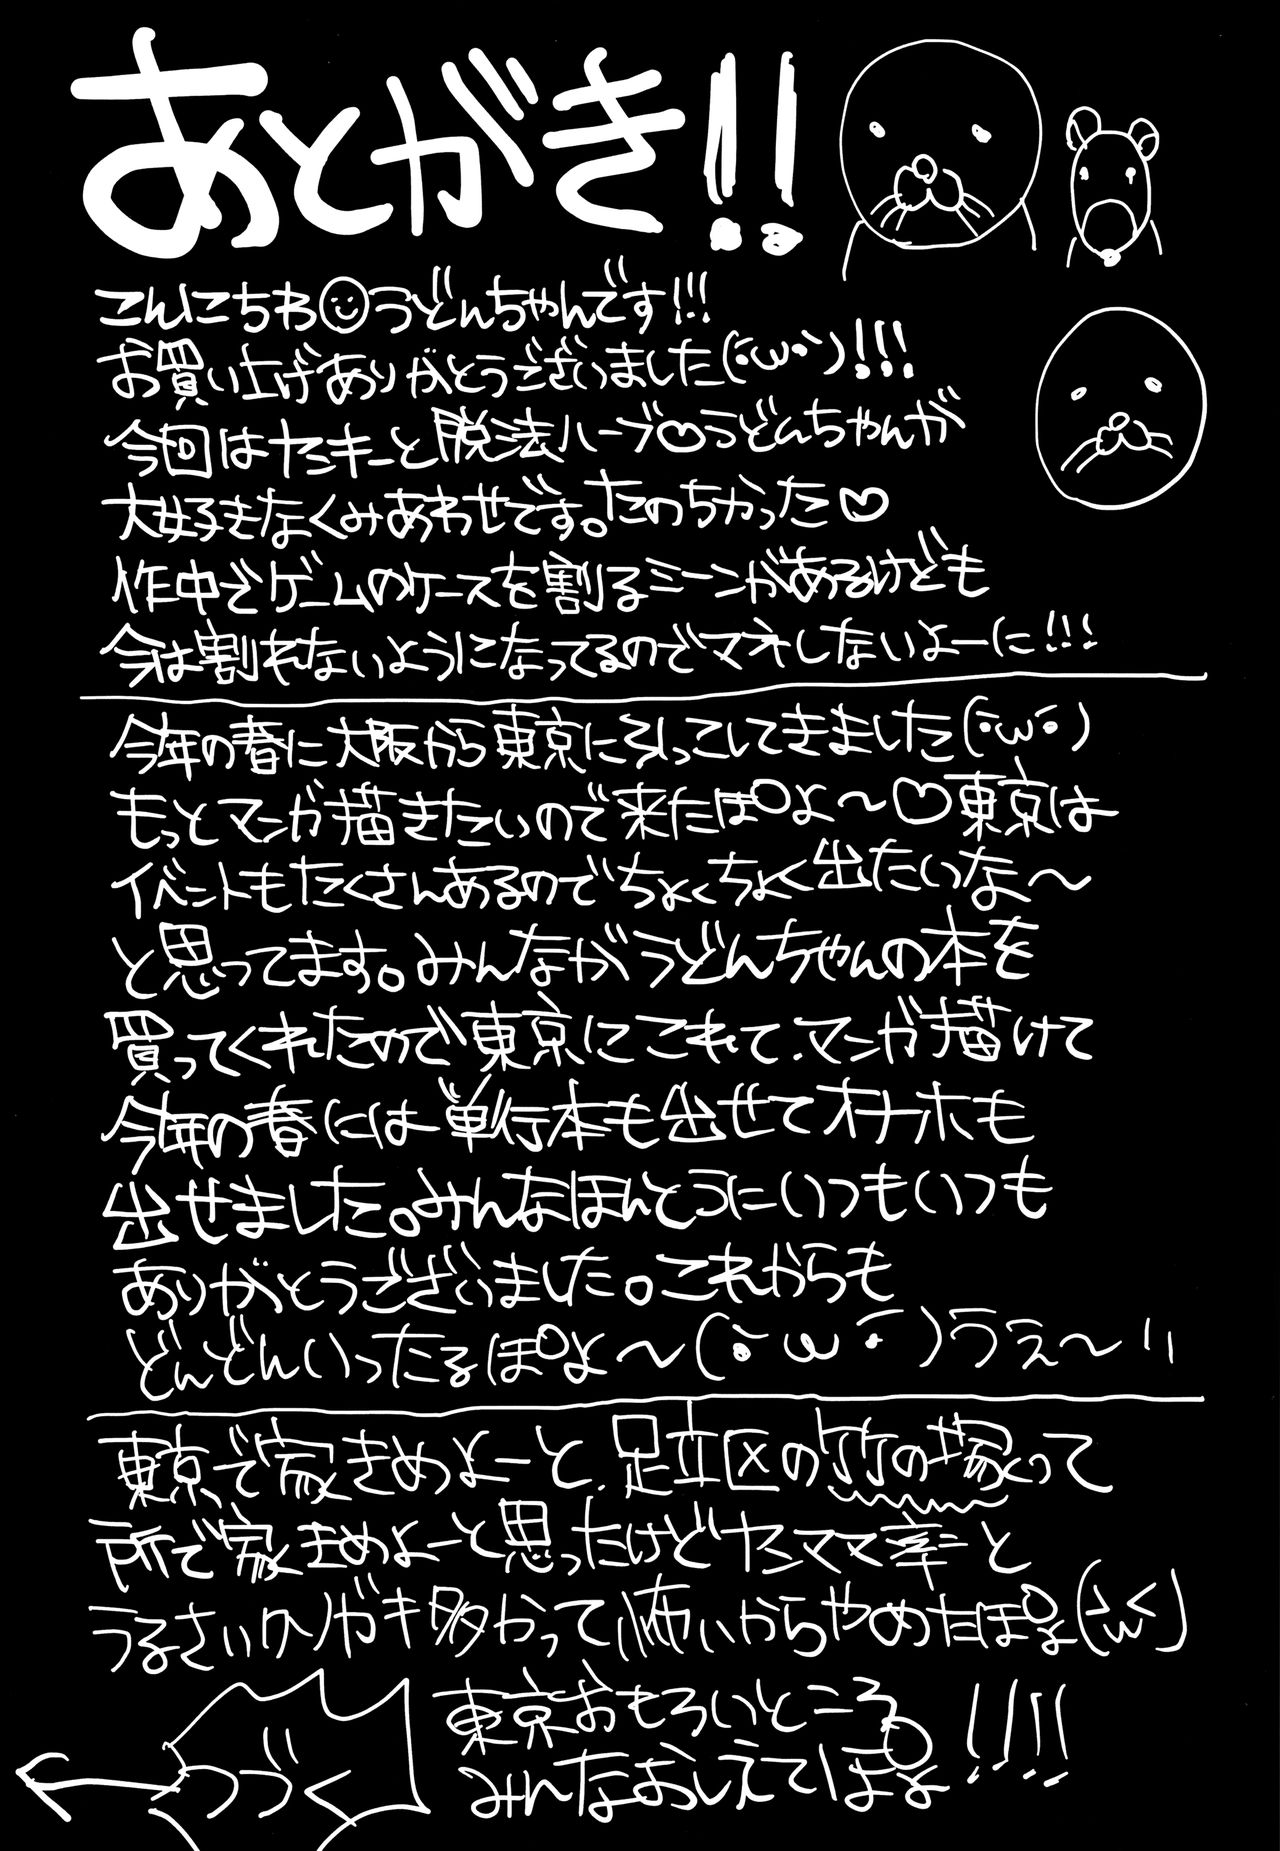 あとがき!!
こんにちわ☺うどんちゃんです!!!
お買い上げありがとうございました(´・ω・`)!!!
今回はヤミキーと脱法ハーブ♡うどんちゃんが
大好きなくみあわせです。たのちかった♡
作中でゲームのケースを割るシーンがあるけども
今は割れないようになってるのでマネしないよーに!!!
今年の春に大阪から東京に引っこしてきました(´・ω・`)
もっとマンガ描きたいので来たぽよ〜♡東京は
イベントもたくさんあるのでちょくちょく出たいな〜
と思ってます。みんながうどんちゃんの本を
買ってくれたので東京にこれて、マンガ描けて
今年の春には単行本も出せてオナホも
出せました。みんなほんとうにいつもいつも
ありがとうございました。これからも
どんどんいったるぽよ〜(´・ω・`)うぇ〜い
東京で家きめよーと、足立区の竹の塚って
所で家きめよーと思ったけどヤンママ率と
うるさいクソガキ多かって怖いからやめたぽよ(´ω`)
東京おもろいところ
みんなおしえてぽよ!!!!
つづく